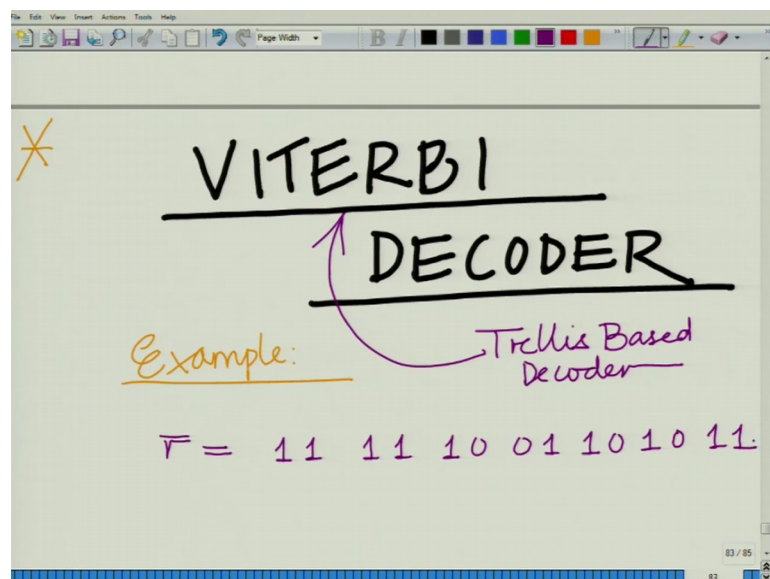 File Edit View Insert Actions Tools Help
Page Width B I
*
VITERBI
DECODER
Example:
Trellis Based
Decoder
r̅ = 11 11 10 01 10 10 11.
83 / 85
83